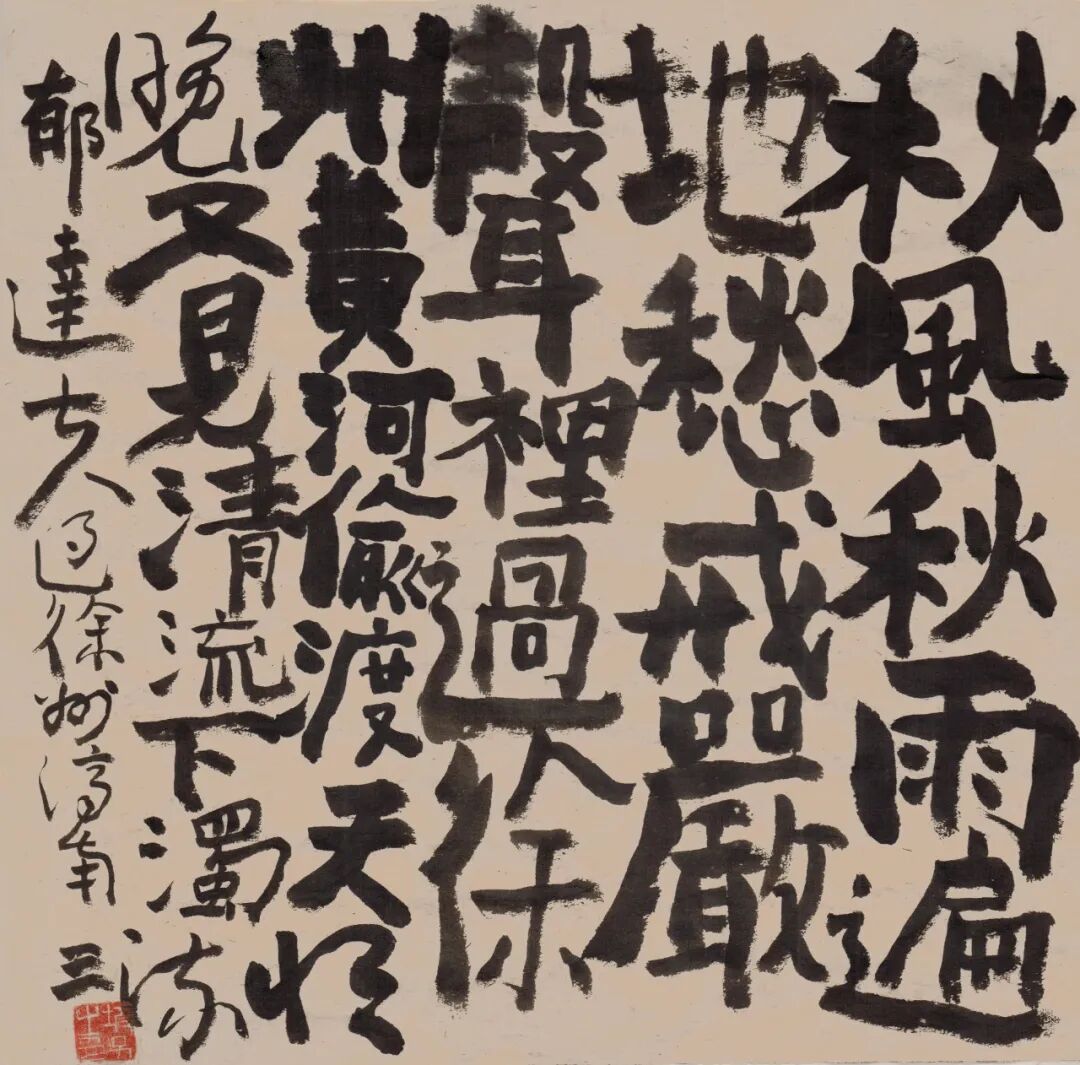 秋風秋雨遍
地愁戒嚴
聲裡過徐
州黃河偷渡天將
晚又見清流下濁流
郁達夫過徐州濟南 三